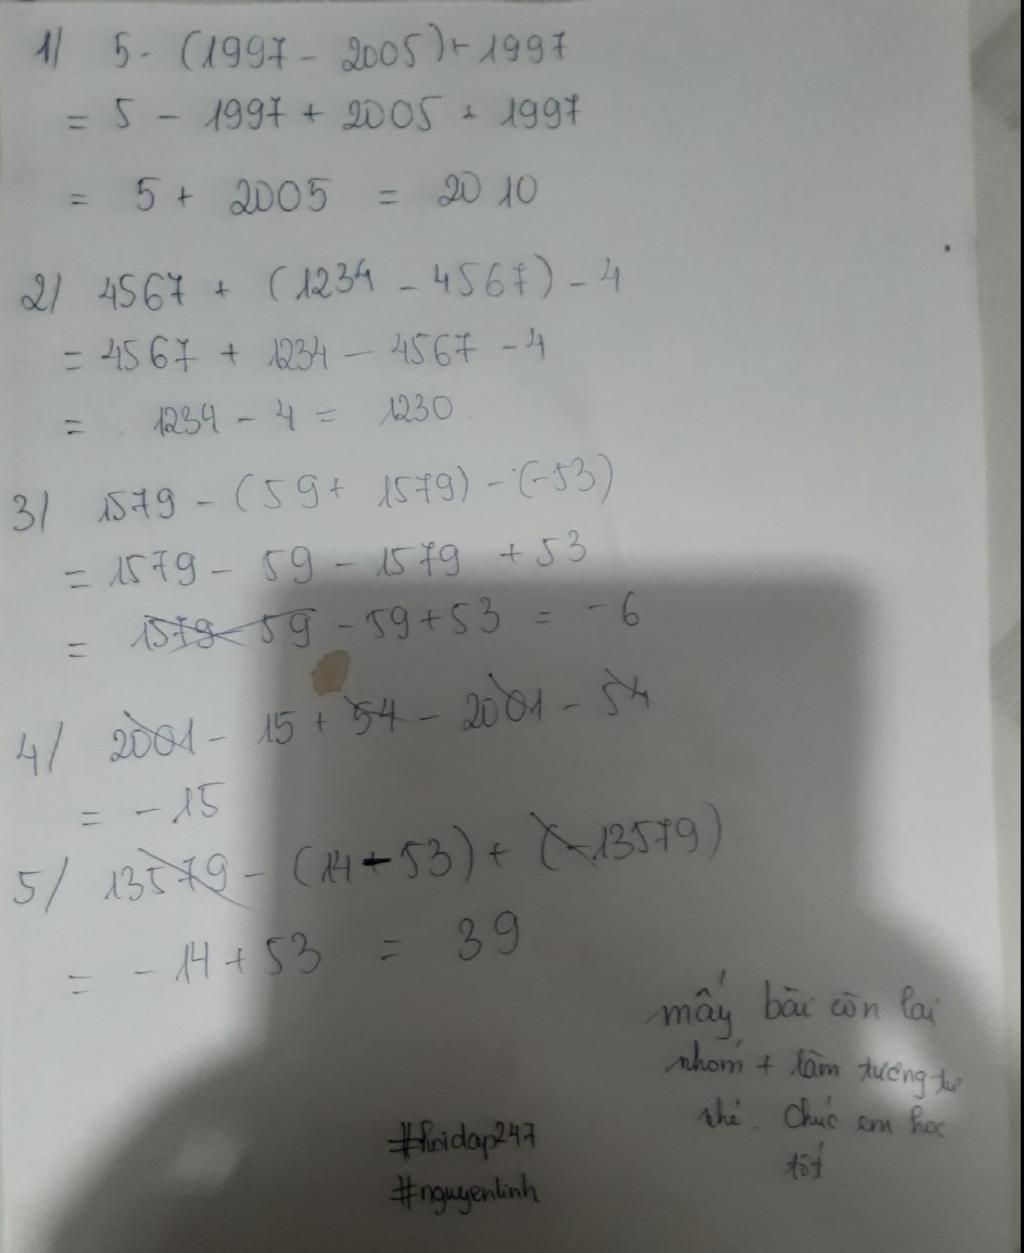 1/ 5 - (1997 - 2005) + 1997
= 5 - 1997 + 2005 + 1997
= 5 + 2005 = 2010
2/ 4567 + (1234 - 4567) - 4
= 4567 + 1234 - 4567 - 4
= 1234 - 4 = 1230
3/ 1579 - (59 + 1579) - (-53)
= 1579 - 59 - 1579 + 53
= 1579 - 59 - 59 + 53 = -6
4/ 2001 - 15 + 54 - 2001 - 54
= -15
5/ 13579 - (14 - 53) + (-13579)
= -14 + 53 = 39
mấy bài còn lại
nhóm + làm tương tự
nhé. Chúc em học
tốt
#hoidap247
#nguyenlinh